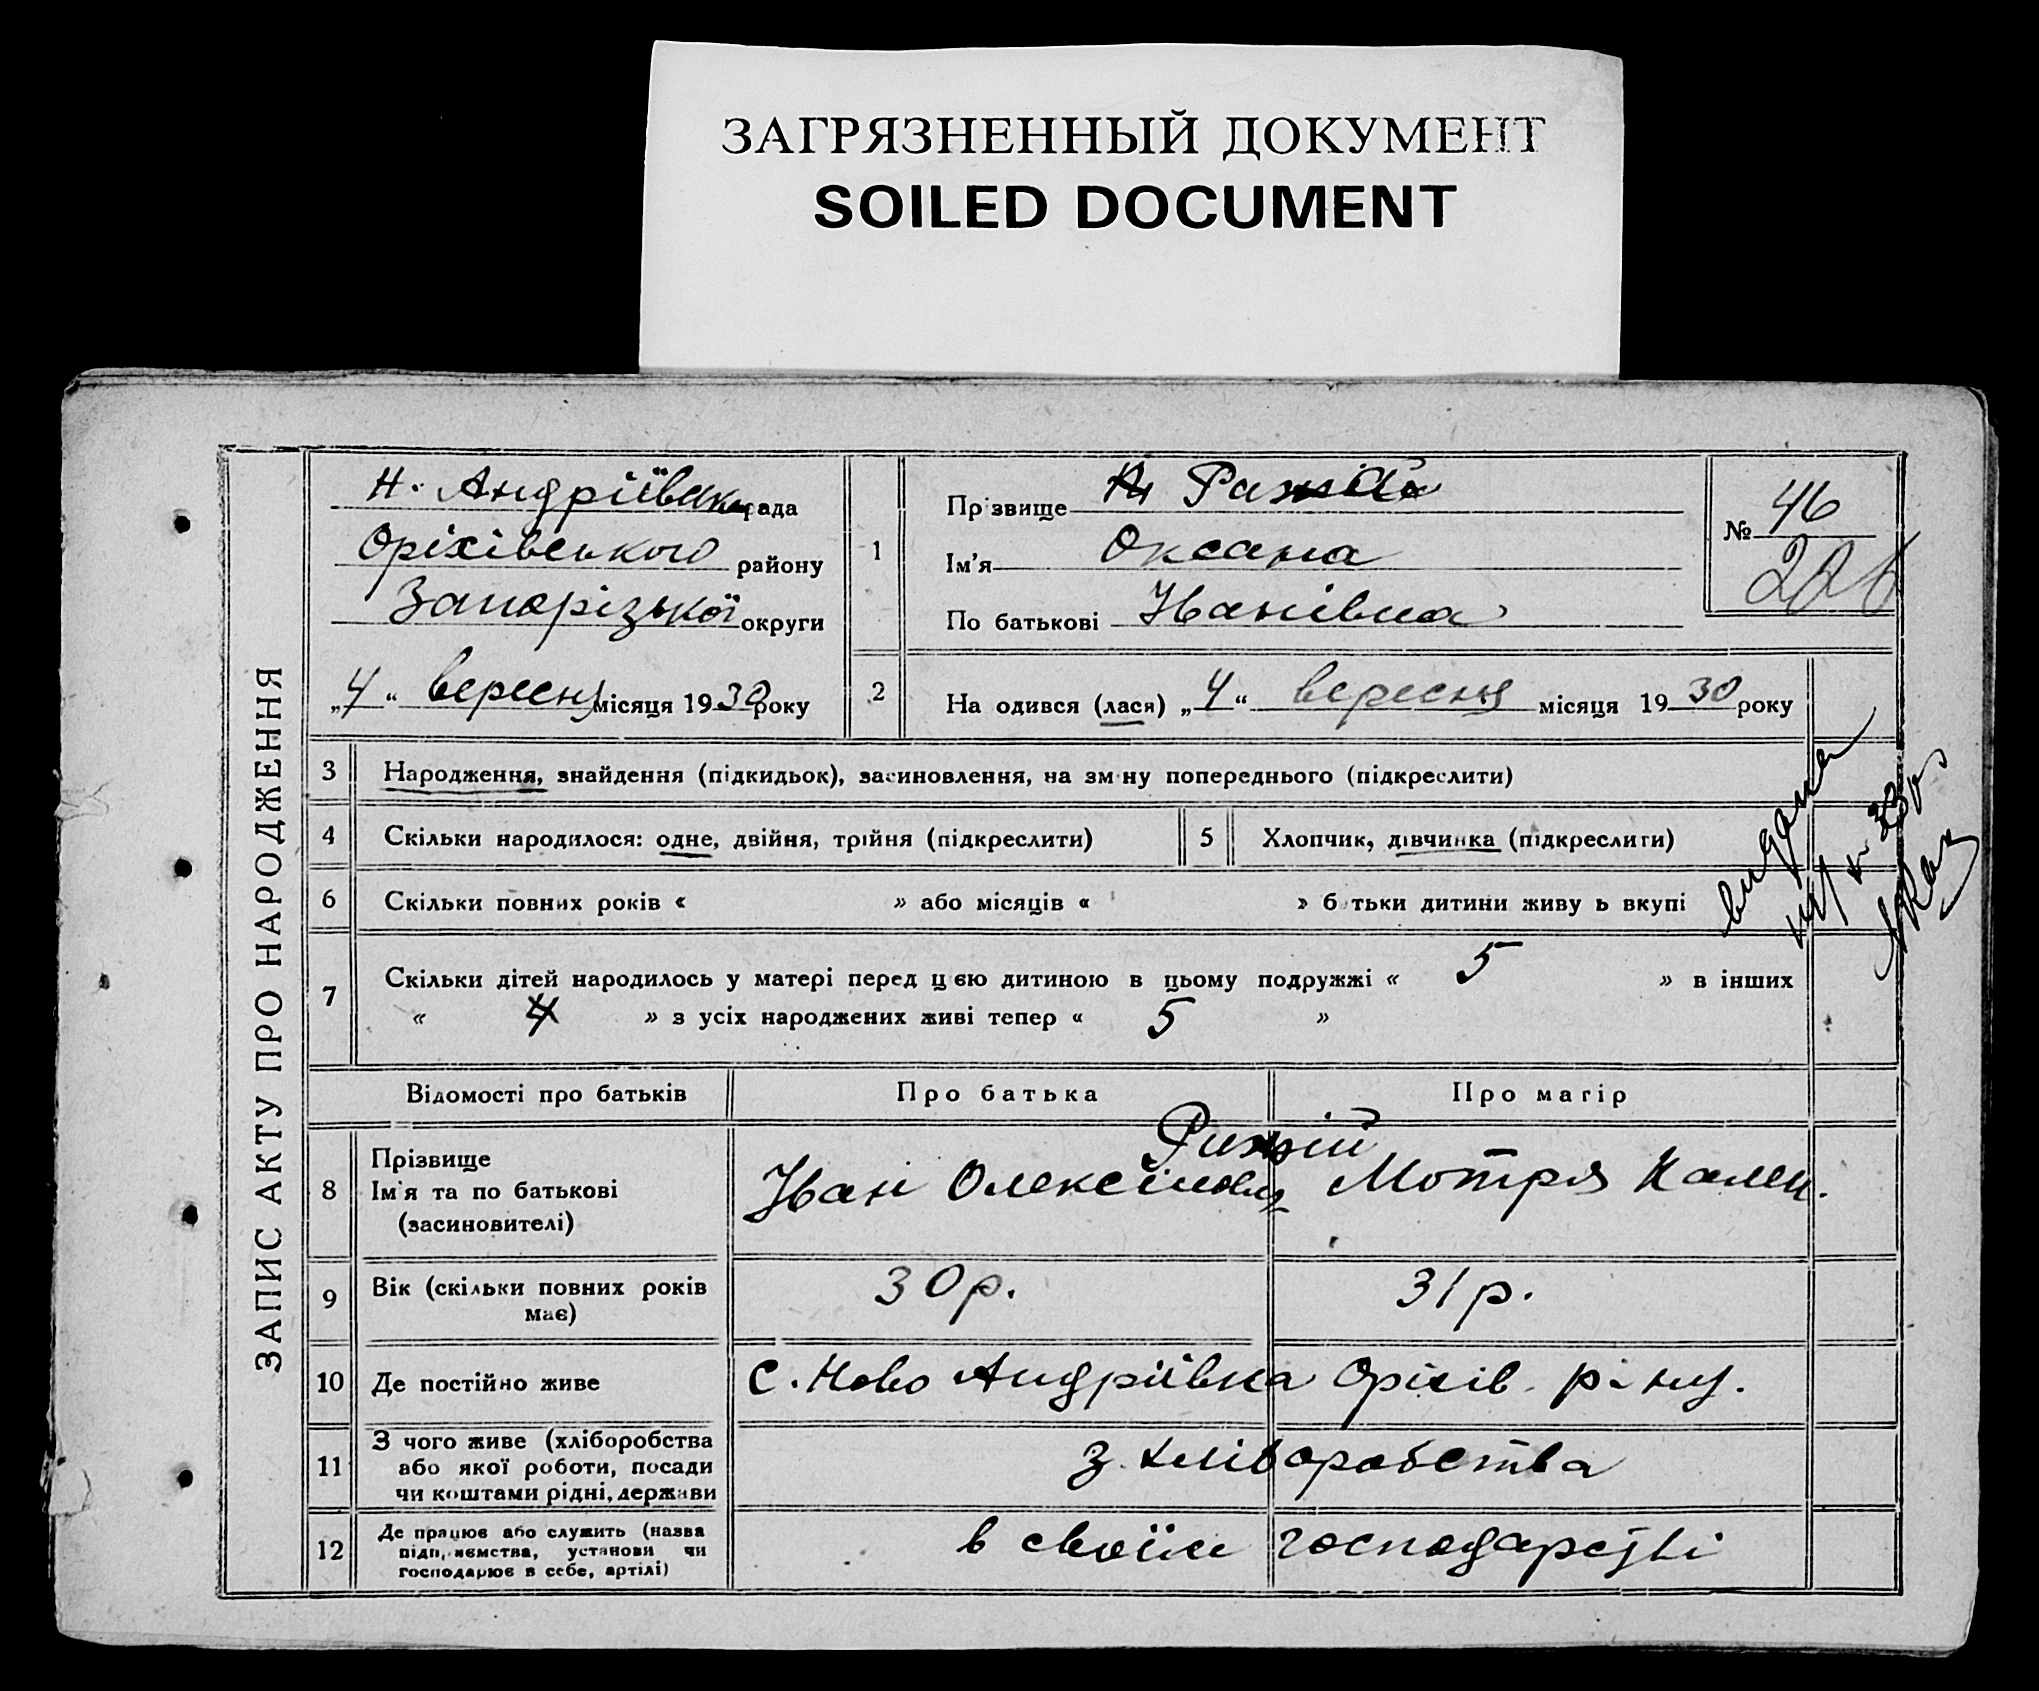 ЗАГРЯЗНЕННЫЙ ДОКУМЕНТ
SOILED DOCUMENT
ЗАПИС АКТУ ПРО НАРОДЖЕННЯ
Н. Андріївська рада
Оріхівського району
Запорізької округи
„4“ вересня місяця 1930 року
1
Прізвище
Ім'я Оксана
По батькові Іванівна
№ 46
2
На одився (лася) „4“ вересня місяця 1930 року
3 Народження, знайдення (підкидьок), засиновлення, на зміну попереднього (підкреслити)
4 Скільки народилося: одне, двійня, трійня (підкреслити)
5 Хлопчик, дівчинка (підкреслити)
видана
6 Скільки повних років « » або місяців « » б тьки дитини живу ь вкупі
7 Скільки дітей народилось у матері перед цією дитиною в цьому подружжі « 5 » в інших
« 4 » з усіх народжених живі тепер « 5 »
Відомості про батьків Про батька Про матір
8 Прізвище
Ім'я та по батькові
(засиновителі)
Рижій
Іван Олексійович Мотря Калеи.
9 Вік (скільки повних років
має)
30 р. 31 р.
10 Де постійно живе с. Ново Андріївка Оріхів. р-ну.
11 З чого живе (хліборобства
або якої роботи, посади
чи коштами рідні, держави
з хліборобства
12 Де працює або служить (назва
підприємства, установи чи
господарює в себе, артілі)
в своїм господарстві